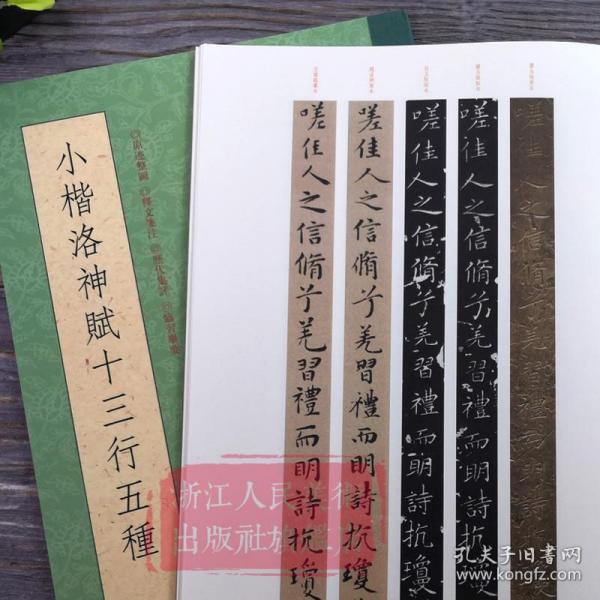 小楷洛神賦十三行五種
◎原迹整圖 ◎釋文箋注 ◎歷代集評 ◎臨習舉要
嗟佳人之信脩兮羌習禮而明詩抗瓊
嗟佳人之信脩兮羌習禮而明詩抗瓊
嗟佳人之信脩兮羌習禮而明詩抗瓊
嗟佳人之信脩兮羌習禮而明詩抗瓊
嗟佳人之信脩兮羌習禮而明詩抗瓊
浙江人民美術
出版社旗艦店
孔夫子旧书网
www.kongfz.com